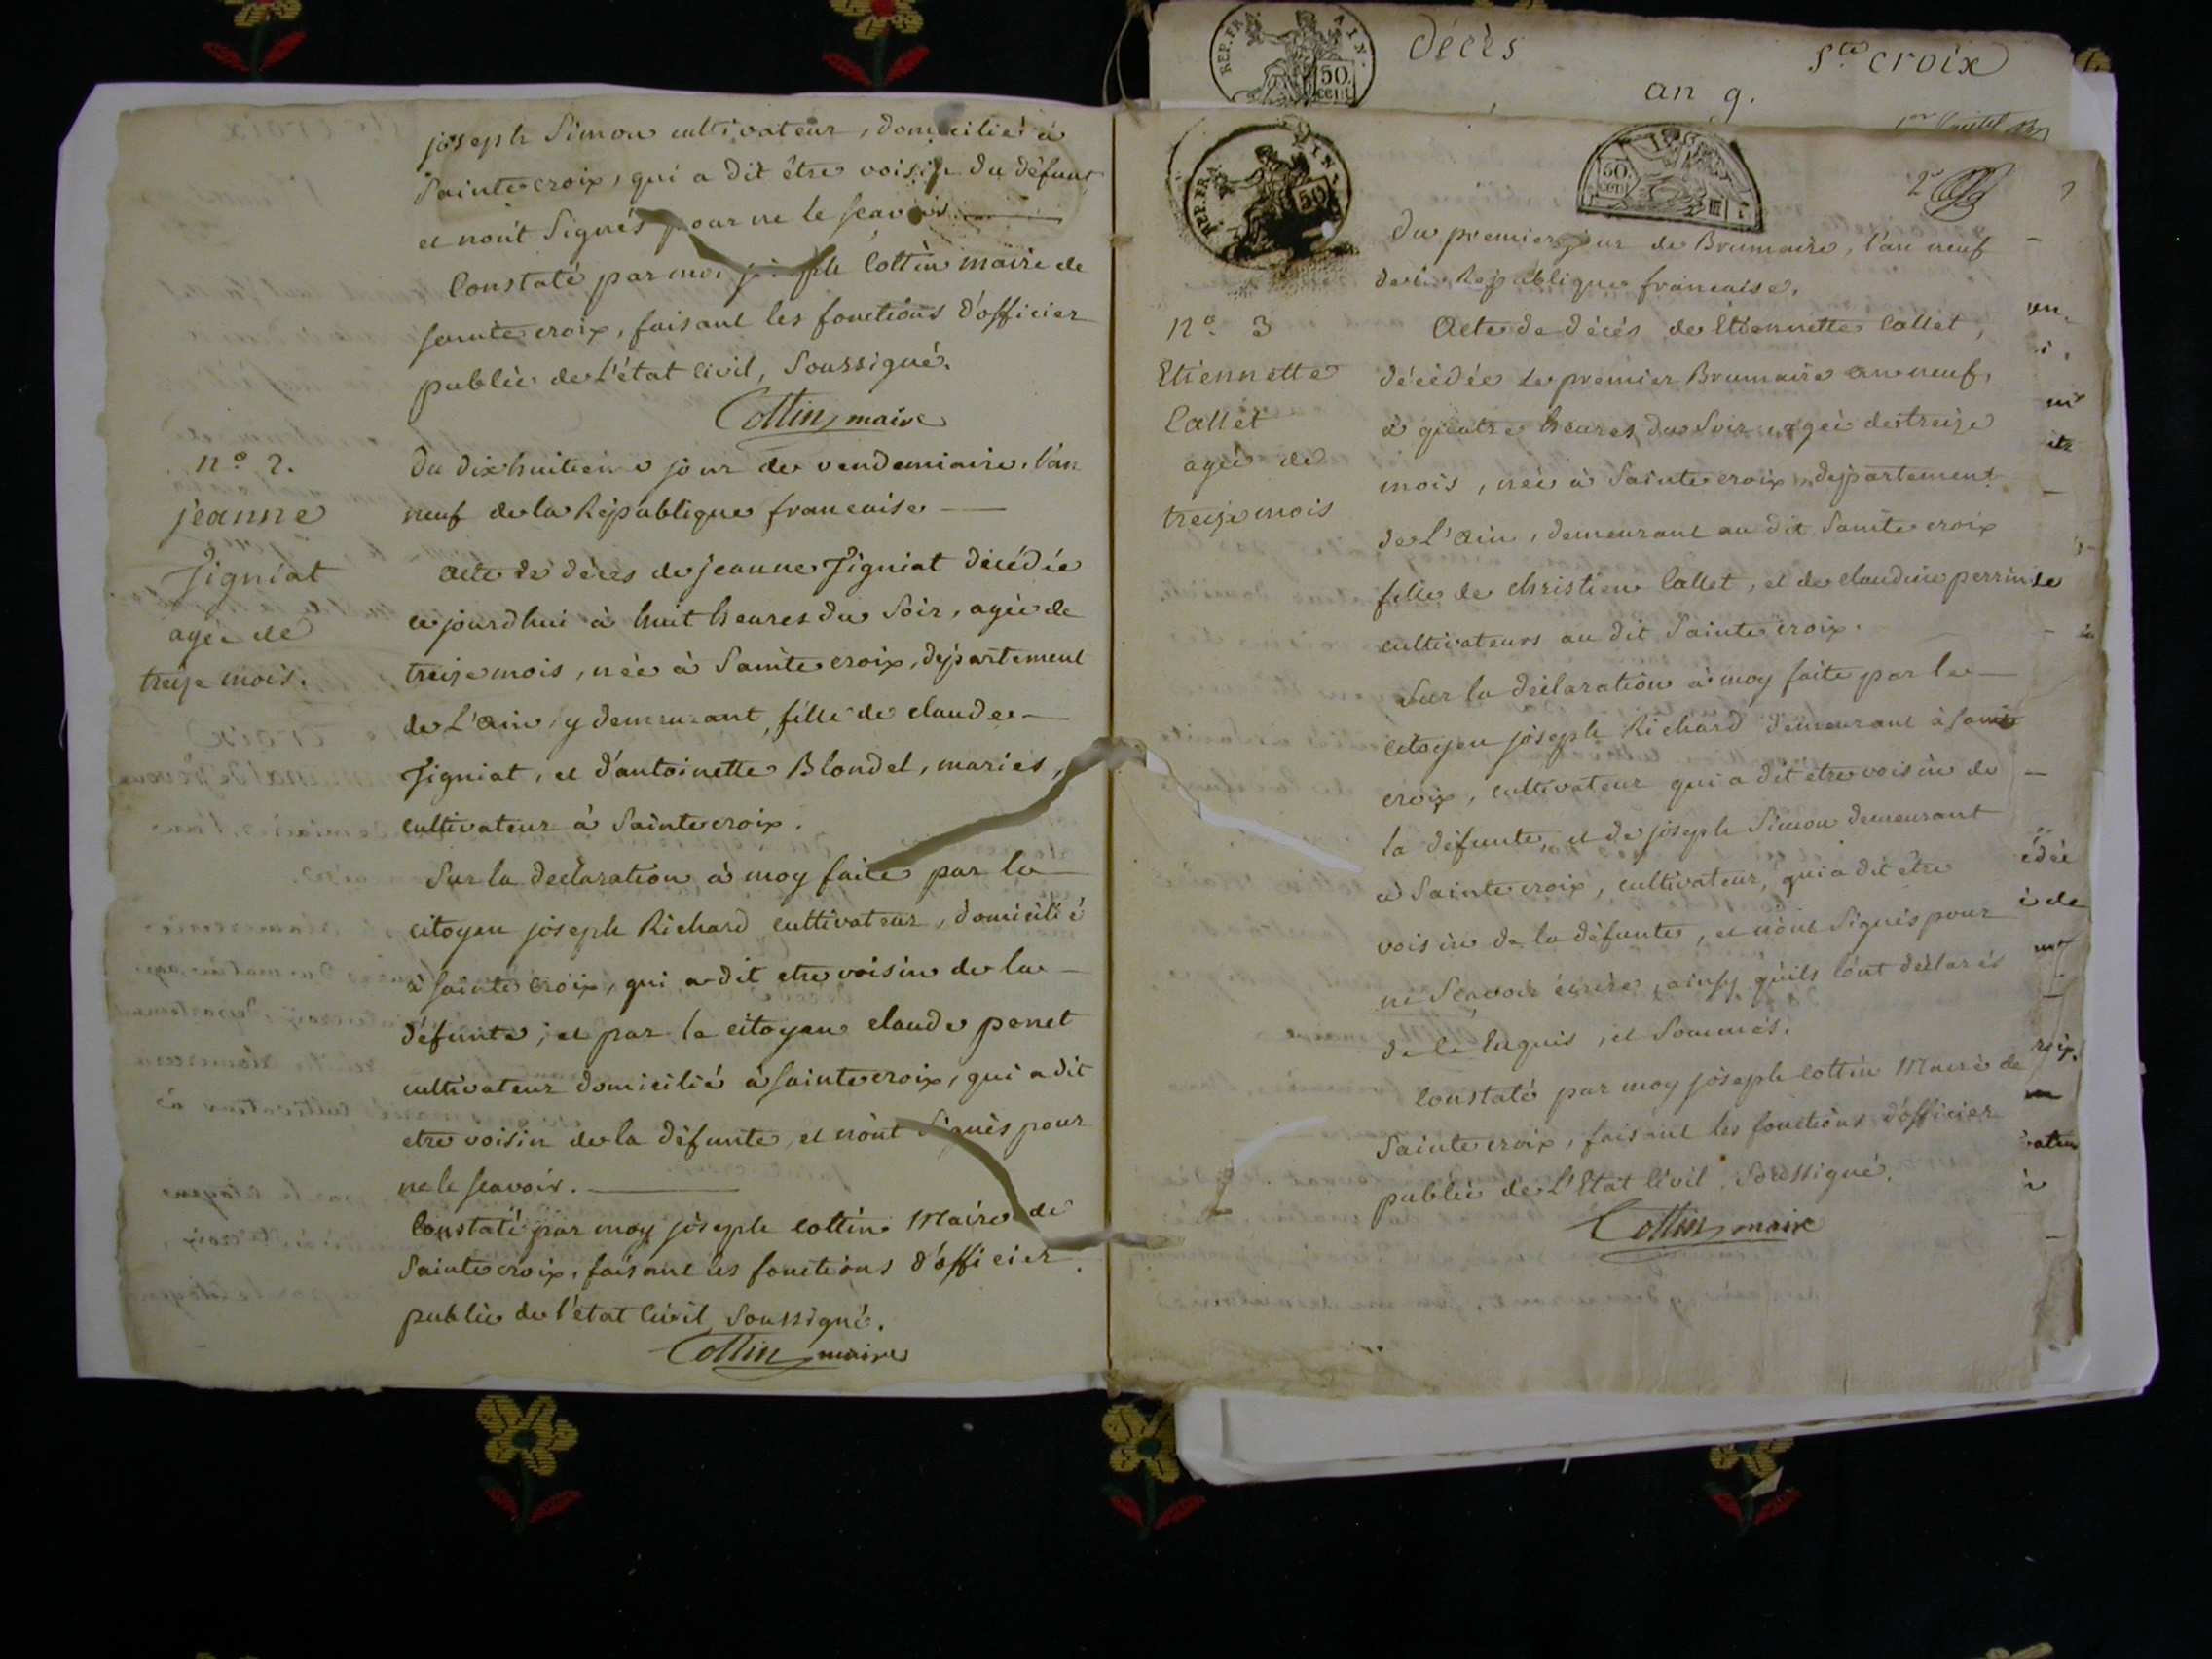 joseph Simon cultivateur, domicilié à
Sainte croix, qui a dit être voisin du défunt
et n'ont Signés pour ne le scavoir
Constaté par moi joseph Cottin maire de
sainte croix, faisant les fonctions d'officier
public de l'état civil, Soussigné.
Cottin, maire
n.º 2.
jeanne
Jigniat
agée de
treize mois.
du dix huitieme jour de vendemiaire, l'an
neuf de la République francaise
acte de décès de jeanne Jigniat décédée
ce jourdhui à huit heures du Soir, agée de
treize mois, née à Sainte croix, département
de L'ain, y demeurant, fille de claude
Jigniat, et d'antoinette Blondel, mariés,
cultivateur à Sainte croix.
Sur la declaration à moy faite par le
citoyen joseph Richard cultivateur, domicilié
à sainte croix, qui a dit etre voisin de la
défunte; et par le citoyen claude penet
cultivateur domicilié à sainte croix, qui a dit
etre voisin de la défunte, et n'ont Signés pour
ne le scavoir.
Constaté par moy joseph Cottin Maire de
Sainte croix, faisant les fonctions d'officier
public de l'état Civil Soussigné.
Cottin, maire
décès
S.te croix
an 9.
REP. FRA.
AIN.
50.
cent
REP. FRA.
AIN.
50
50.
cent
2
du premier jour de Brumaire, l'an neuf
de la République francaise.
n.º 3
Etiennette
Callet
agée de
treize mois
Acte de décès de Etiennette Callet,
décédée le premier Brumaire an neuf,
à quatre heures du Soir, agée de treize
mois, née à Sainte croix, departement
de L'Ain, demeurant au dit Sainte croix
fille de christien Callet, et de claudine perrin
cultivateurs au dit Sainte croix.
Sur la déclaration à moy faite par le
citoyen joseph Richard demeurant à Sainte
croix, cultivateur qui a dit etre voisin de
la défunte, et de joseph Simon demeurant
à Sainte croix, cultivateur, qui a dit être
voisin de la défunte, et n'ont Signés pour
ne Scavoir écrire, ainsy qu'ils l'ont déclarés
de le Enquis, et Sommés.
Constaté par moy joseph Cottin Maire de
Sainte croix, faisant les fonctions d'officier
public de L'Etat Civil, Soussigné.
Cottin, maire